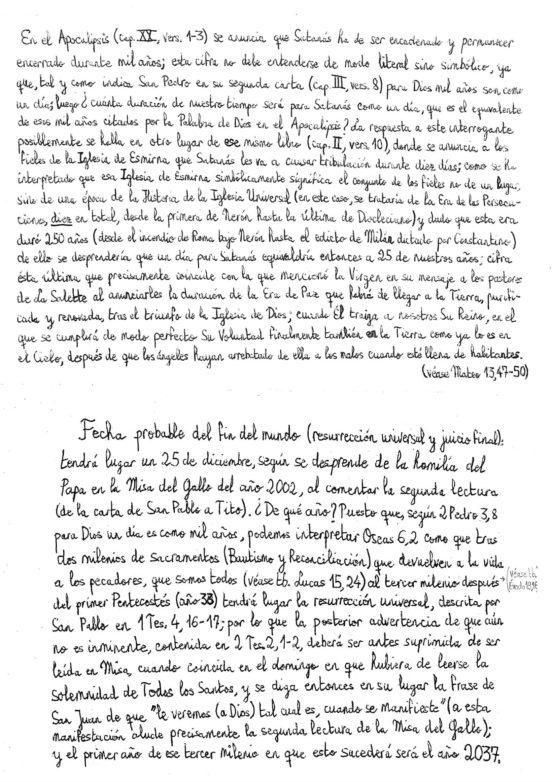 En el Apocalipsis (cap. XX, vers. 1-3) se anuncia que Satanás ha de ser encadenado y permanecer
encerrado durante mil años; esta cifra no debe entenderse de modo literal sino simbólico, ya
que, tal y como indica San Pedro en su segunda carta (cap. III, vers. 8) para Dios mil años son como
un día; luego ¿cuánta duración de nuestro tiempo será para Satanás como un día, que es el equivalente
de esos mil años citados por la Palabra de Dios en el Apocalipsis? La respuesta a este interrogante
posiblemente se halla en otro lugar de ese mismo libro (cap. II, vers. 10), donde se anuncia a los
fieles de la Iglesia de Esmirna que Satanás les va a causar tribulación durante diez días; como se ha
interpretado que esa Iglesia de Esmirna simbólicamente significa el conjunto de los fieles no de un lugar,
sino de una época de la Historia de la Iglesia Universal (en este caso, se trataría de la Era de las Persecu-
ciones, diez en total, desde la primera de Nerón hasta la última de Diocleciano) y dado que esta era
duró 250 años (desde el incendio de Roma bajo Nerón hasta el edicto de Milán dictado por Constantino)
de ello se desprendería que un día para Satanás equivaldría entonces a 25 de nuestros años; cifra
ésta última que precisamente coincide con la que mencionó la Virgen en su mensaje a los pastores
de La Salette al anunciarles la duración de la Era de Paz que habrá de llegar a la Tierra, purifi-
cada y renovada, tras el triunfo de la Iglesia de Dios; cuando Él traiga a nosotros Su Reino, en el
que se cumplirá de modo perfecto Su Voluntad finalmente también en la Tierra como ya lo es en
el Cielo, después de que los ángeles hayan arrebatado de ella a los malos cuando esté llena de habitantes.
(véase Mateo 13,47-50)
Fecha probable del fin del mundo (resurrección universal y juicio final):
tendrá lugar un 25 de diciembre, según se desprende de la homilía del
Papa en la Misa del Gallo del año 2002, al comentar la segunda lectura
(de la carta de San Pablo a Tito). ¿De qué año? Puesto que, según 2 Pedro 3,8
para Dios un día es como mil años, podemos interpretar Oseas 6,2 como que tras
dos milenios de sacramentos (Bautismo y Reconciliación) que devuelven a la vida
a los pecadores, que somos todos (véase tb. Lucas 15,24) al tercer milenio después
(véase tb.
del primer Pentecostés (año 33) tendrá lugar la resurrección universal, descrita por
San Pablo en 1 Tes. 4, 16-17; por lo que la posterior advertencia de que aún
no es inminente, contenida en 2 Tes. 2, 1-2, deberá ser antes suprimida de ser
leída en Misa, cuando coincida en el domingo en que hubiera de leerse la
solemnidad de Todos los Santos, y se diga entonces en su lugar la frase de
San Juan de que "le veremos (a Dios) tal cual es, cuando se manifieste" (a esta
manifestación alude precisamente la segunda lectura de la Misa del Gallo);
y el primer año de ese tercer milenio en que esto sucederá será el año 2037.